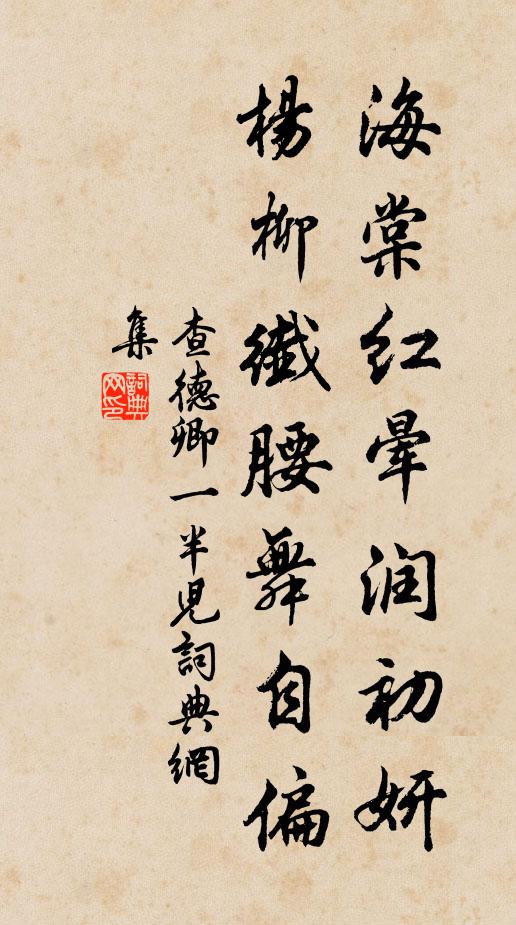 海棠红晕润初妍
楊柳纖腰舞自偏
查德卿一半兒詞典網
集
詞典网印